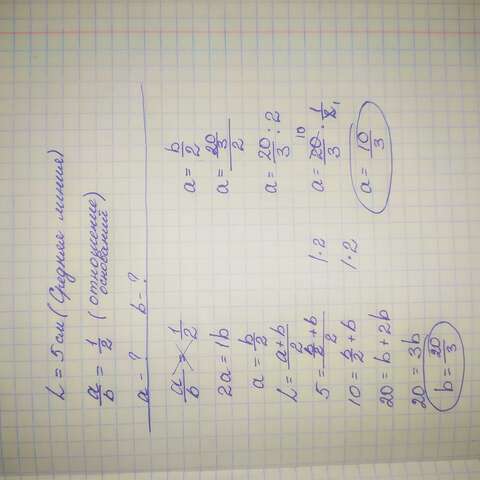 L = 5 см (Средняя линия)
a/b = 1/2 (отношение оснований)
a - ? b - ?
a/b = 1/2
2a = 1b
a = b/2
L = (a+b)/2
5 = (b/2 + b)/2 | · 2
10 = b/2 + b | · 2
20 = b + 2b
20 = 3b
b = 20/3
a = b/2
a = (20/3)/2
a = 20/3 : 2
a = 20/3 · 1/2 10 1
a = 10/3